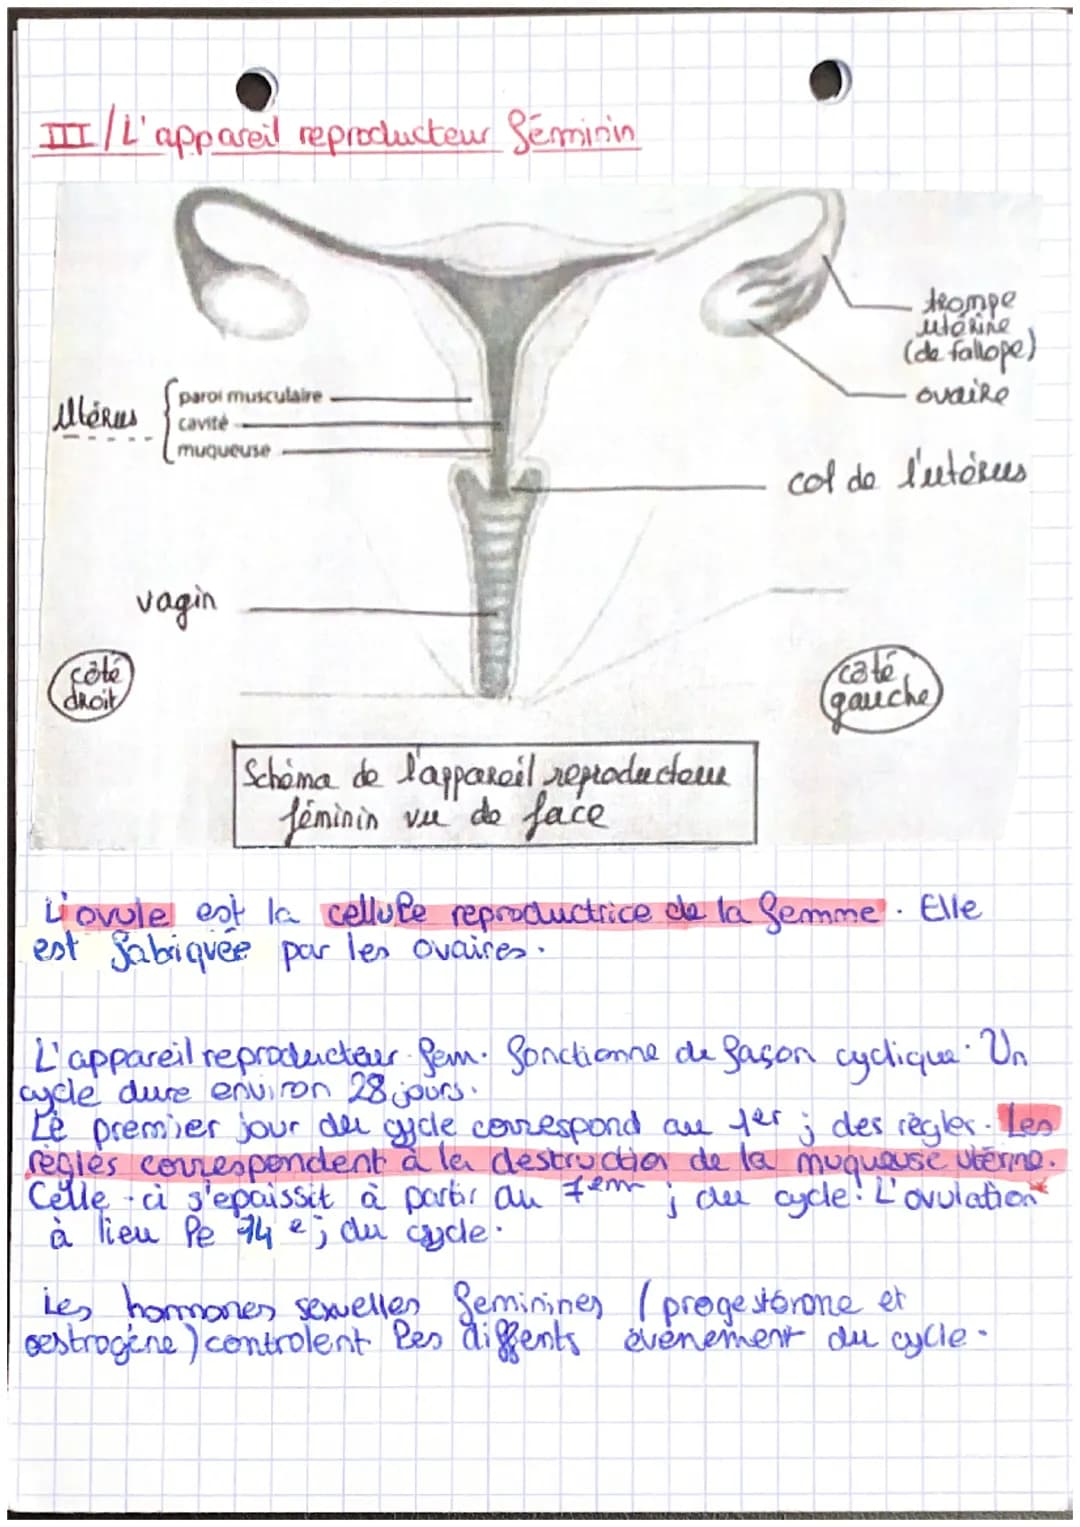 III/L'appareil reproducteur féminin
trompe
utérine
(de fallope)
ovaire
Utérus
paroi musculaire
cavité
muqueuse
col de l'utérus
vagin
côté
droit
côté
gauche
Schéma de l'appareil reproducteur
féminin vu de face
L'ovule est la cellule reproductrice de la femme. Elle
est fabriquée par les ovaires.
L'appareil reproducteur fem. fonctionne de façon cyclique. Un
cycle dure environ 28 jours.
Le premier jour du cycle correspond au 1er j des règles. Les
règles correspondent à la destruction de la muqueuse utérine.
Celle-ci s'epaissit à partir du 7em j du cycle. L'ovulation*
à lieu le 14 e j du cycle.
Les hormones sexuelles feminines (progestérone et
oestrogène) controlent les diffents évènement du cycle.